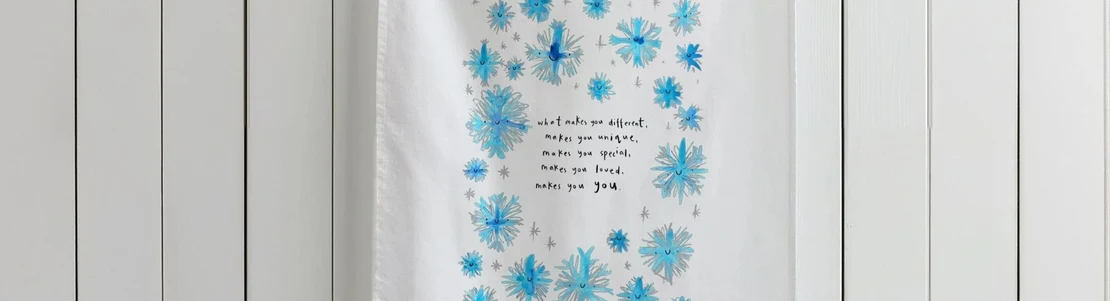 what makes you different,
makes you unique,
makes you special,
makes you loved.
makes you you.